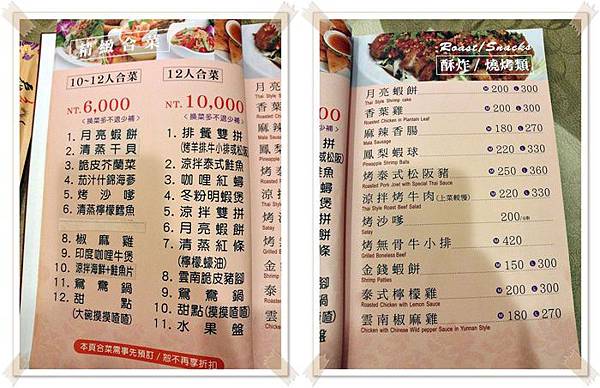 精緻合菜
10~12人合菜
NT. 6,000
<換菜多不退少補>
1. 月亮蝦餅
2. 清蒸干貝
3. 脆皮芥蘭菜
4. 茄汁什錦海蔘
5. 烤沙嗲
6. 清蒸檸檬鱈魚
8. 椒麻雞
9. 印度咖哩牛煲
10. 涼拌海鮮+鮭魚片
11. 鴛鴦鍋
12. 甜點
(大碗摸摸喳喳)
12人合菜
NT. 10,000
<換菜多不退少補>
1. 排餐雙拼
(烤羊排.牛小排或松阪)
2. 涼拌泰式鮭魚
3. 咖哩紅蟳
4. 冬粉明蝦煲
5. 涼拌雙拼
6. 月亮蝦餅
7. 清蒸紅條
(檸檬.蠔油)
8. 雲南脆皮豬腳
9. 鴛鴦鍋
10. 甜點(摸摸喳喳)
11. 水果盤
本頁合菜需事先預訂/恕不再享折扣
Roast/Snacks
酥炸/燒烤類
月亮蝦餅 M 200 L 300
Thai Style Shrimp cake
香葉雞 M 200 L 300
Roasted Chicken in Plantain Leaf
麻辣香腸 M 180 L 270
Mala Sausage
鳳梨蝦球 M 220 L 330
Pineapple Shrimp Balls
烤泰式松阪豬 M 250 L 360
Roasted Pork Jowl with Special Thai Sauce
涼拌烤牛肉(上菜較慢) M 220 L 330
Thai Style Roast Beef Salad
烤沙嗲 200/6串
Satay
烤無骨牛小排 M 420
Grilled Boneless Beef
金錢蝦餅 M 150 L 300
Shrimp Patties
泰式檸檬雞 M 200 L 300
Roasted Chicken with Lemon Sauce
雲南椒麻雞 M 180 L 270
Chicken with Chinese Wild pepper Sauce in Yunnan Style